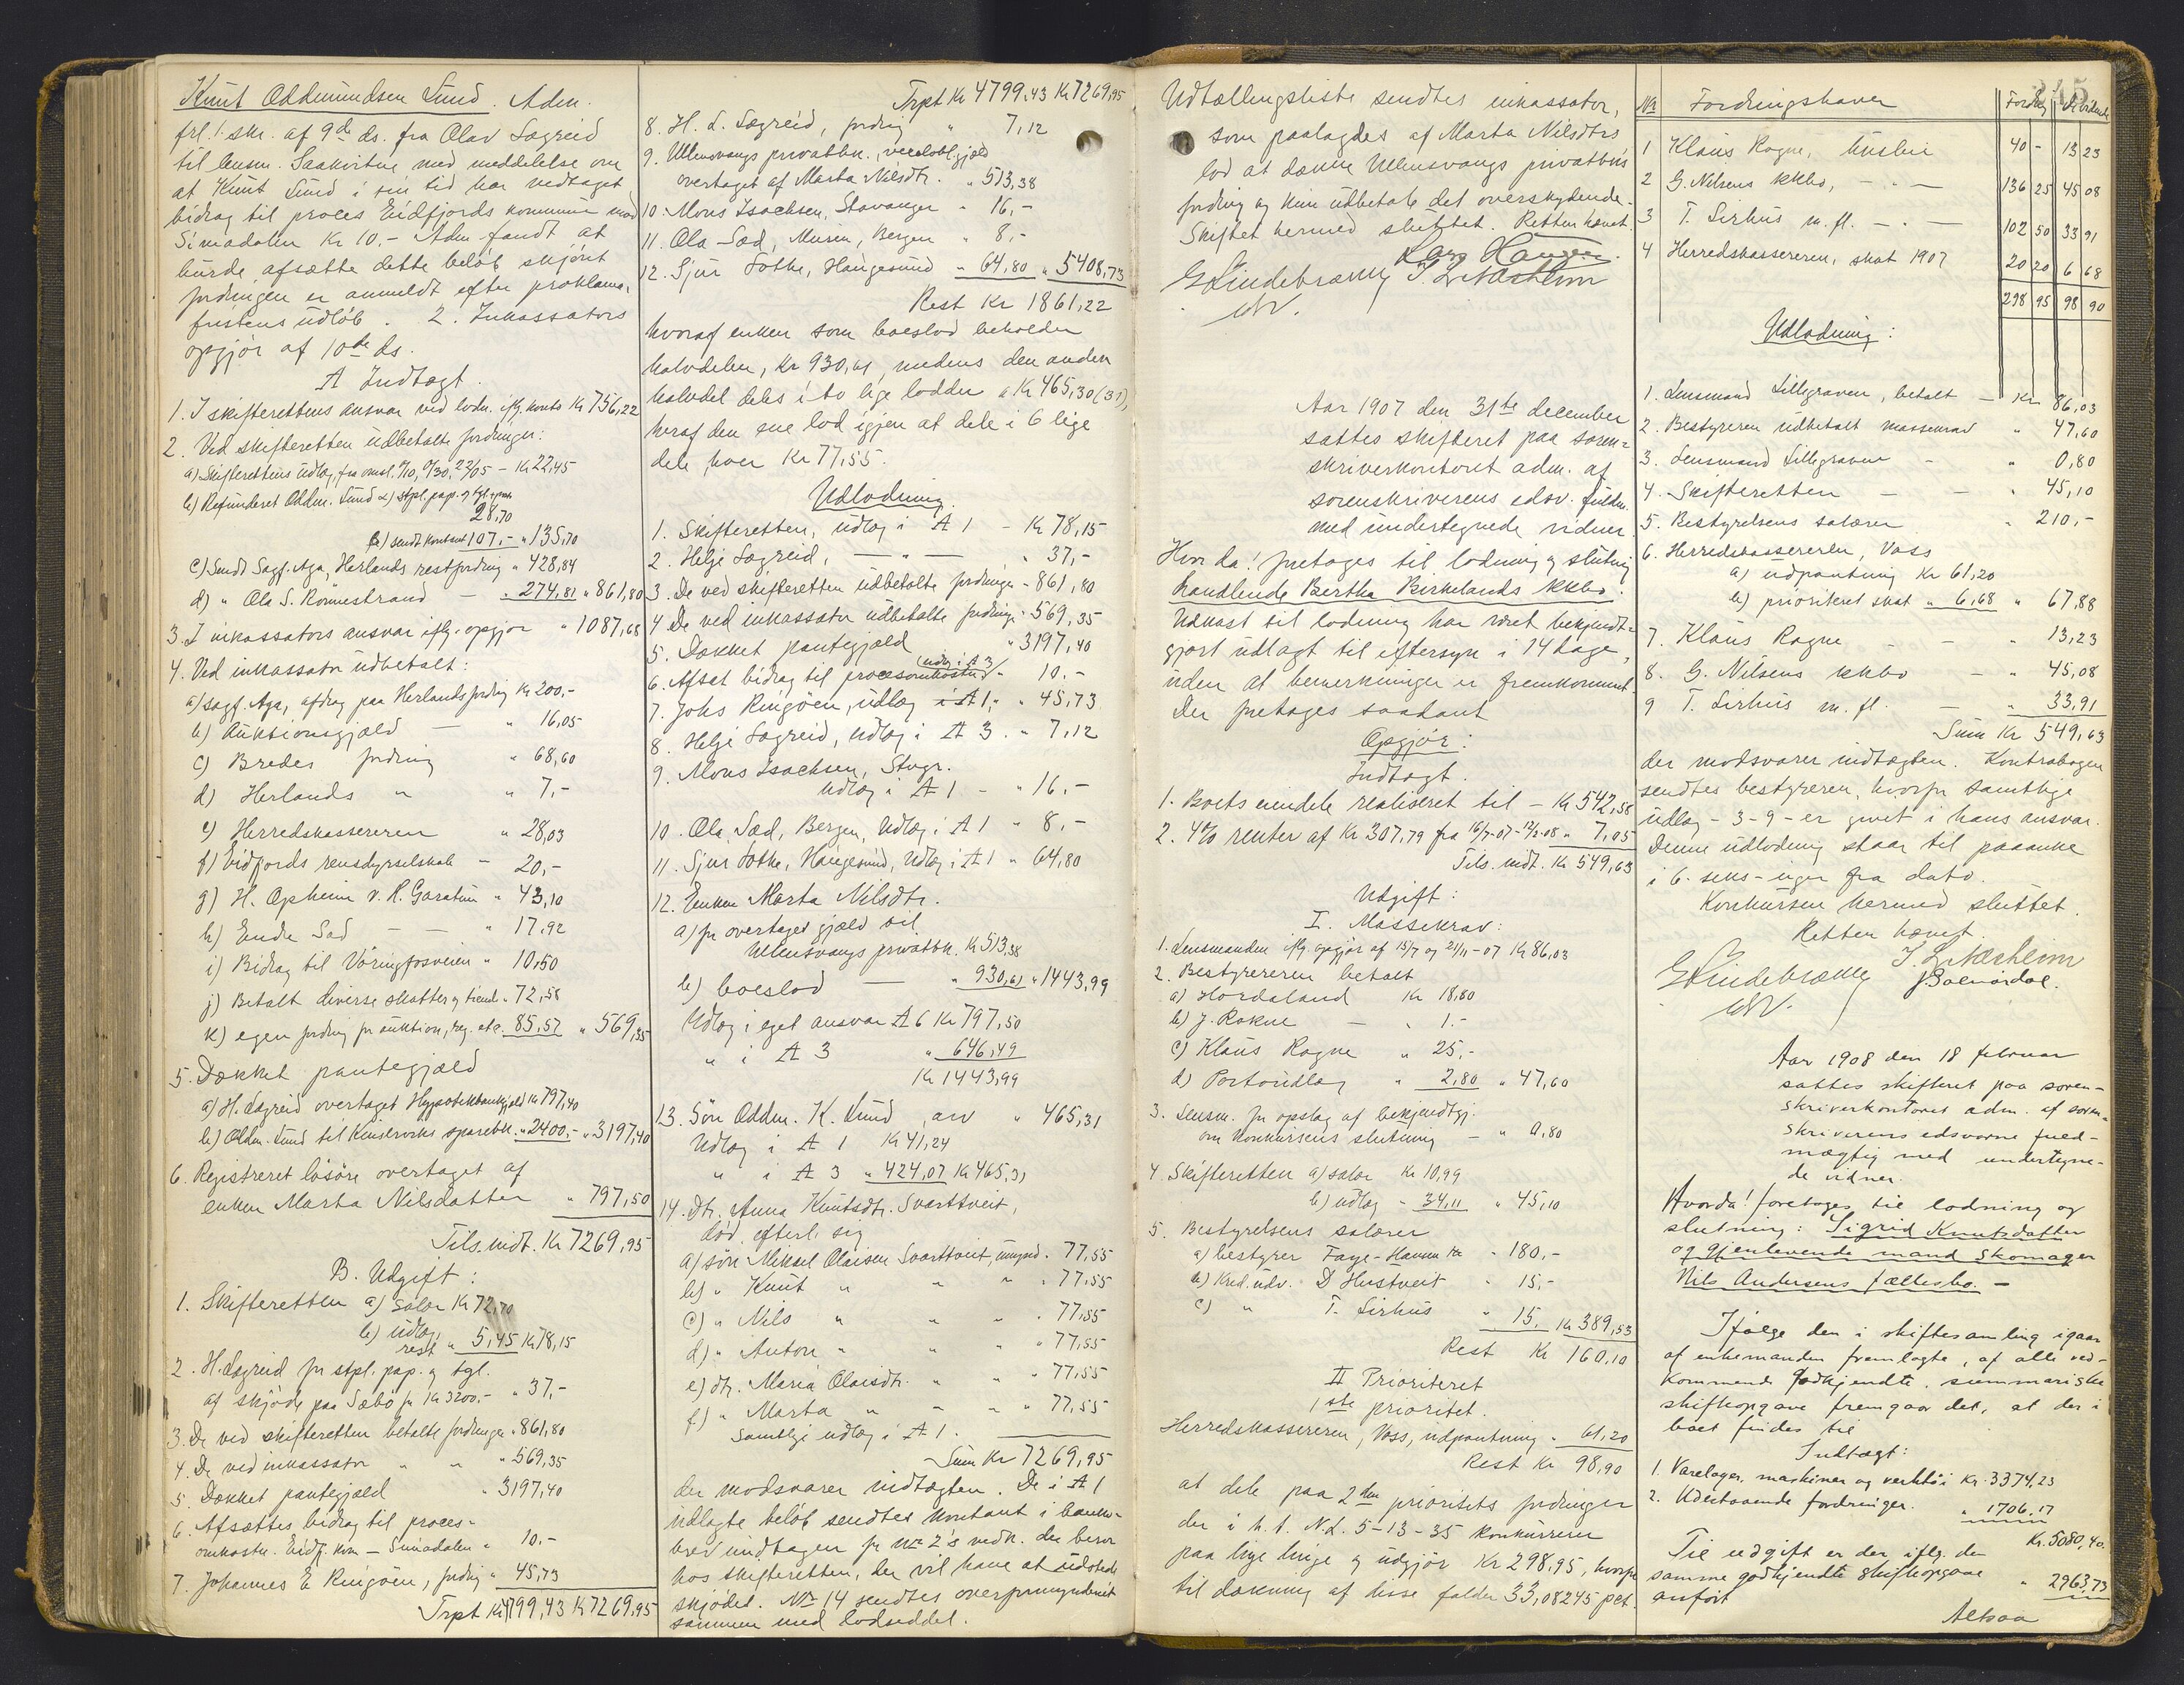 Knut Oddmundsen Sund. Adm.
frl. 1. skr. af 9de ds. fra Olav Sægreid
til lensm. Saakvitne med meddelelse om
at Knut Sund i sin tid har vedtaget
bidrag til proces Eidfjords kommune mod
Simadalen Kr 10.- Adm fandt at
burde afsætte dette beløb skjönt
fordringen er anmeldt efter proklama-
fristens udløb. 2. Inkassators
opgjör af 10de ds.
A Indtægt.
1. I skifterettens ansvar ved lodn. iflg. konto Kr 756,22
2. Ved skifteretten udbetalte fordringer:
a) Skifterettens udlæg, fra omsl. - Kr 22,45
b) Refunderet Oddm. Sund α) stpl. pap. og tgl.
28,70
β) sendt kontant 107,- " 135,70
c) Sendt Sagf. Aga, Herlands restfordring " 428,84
d) " Ola S. Rommestrand - " 274,81 " 861,80
3. I inkassators ansvar iflg. opgjör " 1087,68
4. Ved inkassator udbetalt:
a) sagf. Aga, afdrag paa Herlands fordring Kr 200,-
b) Auktionsgjæld - " 16,05
c) Bredes fordring " 68,60
d) Herlands " " 7,-
e) Herredskassereren " 28,03
f) Eidfjords rensdyrselskab - 20,-
g) H. Opheim v. R. Garatun " 43,10
h) Endre Sæd - - " 17,92
i) Bidrag til Vöringfosveien " 10,50
j) Betalt diverse skatter og tiende " 72,58
k) egen fordring for auktion, reg. etc. 85,57 " 569,35
5. Dækket pantegjæld
a) H. Sægreid overtaget Hypothekbankgjæld Kr 797,40
b) Oddm. Sund til Kinserviks sparebk. " 2400,- " 3197,40
6. Registreret lösöre overtaget af
enken Marta Nilsdatter " 797,50
Tils. indt. Kr 7269,95
B. Udgift:
1. Skifteretten a) salær Kr 72,70
b) udlæg,
rest " 5,45 Kr 78,15
2. H. Sægreid for stpl. pap. og tgl.
af skjöde paa Sæbö for Kr 3200,- " 37,-
3. De ved skifteretten betalte fordringer " 861,80
4. De ved inkassator " " " 569,35
5. Dækket pantegjæld " 3197,40
6. Afsættes bidrag til proces-
omkostn. Eidfj. kom - Simadalen " 10.-
7. Johannes E Ringöen, fordring " 45,73
Trpt Kr 4799,43 Kr 7269,95
Trpt Kr 4799,43 Kr 7269,95
8. H. L. Sægreid, fordring " 7,12
9. Ullensvangs privatbk., vexelobl. gjæld
overtaget af Marta Nilsdtr. " 513,38
10. Mons Isachsen, Stavanger " 16,-
11. Ola Sæd, Muren, Bergen " 8,-
12. Sjur Lothe, Haugesund " 64,80 " 5408,73
Rest Kr 1861,22
hvoraf enken som boeslod beholder
halvdelen, Kr 930,61, medens den anden
halvdel deles i to lige lodder a Kr 465,30 (31),
heraf den ene lod igjen at dele i 6 lige
dele hver Kr 77,55.
Udlodning
1. Skifteretten, udlæg i A 1 - Kr 78,15
2. Helje Sægreid, - " - " 37,-
3. De ved skifteretten udbetalte fordringer - 861,80
4 De ved inkassator udbetalte fordringer - 569,35
5. Dækket pantegjæld " 3197,40
6. Afsat bidrag til procesomkostn. (udlæg i A 3) - 10.-
7. Johs Ringöen, udlæg i A 1, " 45,73
8. Helje Sægreid, udlæg i A 3. " 7,12
9. Mons Isachsen, Stvgr.
udlæg i A 1 - " 16.-
10. Ola Sæd, Bergen, udlæg i A 1 " 8,-
11. Sjur Lothe, Haugesund, udlæg i A 1 " 64,80
12. Enken Marta Nilsdtr.
a) for overtaget gjæld til
Ullensvangs privatbk. Kr 513,38
b) boeslod - " 930,61 " 1443,99
Udlæg i eget ansvar A 6 Kr 797,50
" i A 3 " 646,49
Kr 1443,99
13. Sön Oddm. K. Sund, arv " 465,31
Udlæg i A 1 Kr 41,24
" i A 3 " 424,07 Kr 465,31
14. Dtr. Anna Knutsdtr. Svarttveit,
död, efterl. sig
a) sön Mikael Olaisen Svarttveit, umynd. 77,55
b) " Knut " " " " 77,55
c) " Nils " " " 77,55
d) " Anton " " " 77,55
e) dtr. Maria Olaisdtr. " " " 77,55
f) " Marta " " " " 77,55
Samtlige udlæg i A 1.
Sum Kr 7269,95
der modsvarer indtægten. De i A 1
udlagte beløb sendtes kontant i banko-
brev undtagen for No 2's vedk. der beror
hos skifteretten, der vil have at udstede
skjödet. No 14 sendtes overformynderiet
sammen med lodseddel.
Udtællingsliste sendtes inkassator,
som paalagdes af Marta Nilsdtrs
lod at dække Ullensvangs privatbks
fordring og kun udbetale det overskydende.
Skiftet hermed sluttet. Retten hævet.
GLindebrække
Aar 1907 den 31te december
sattes skifteret paa soren-
skriverkontoret adm. af
sorenskriverens edsv. fuldm.
med undertegnede vidner.
Hvor da! foretoges til lodning og slutning
handlende Bertha Birkelands kkbo.
Udkast til lodning har været bekjendt-
gjort udlagt til eftersyn i 14 dage,
uden at bemerkninger er fremkommet.
Der foretoges saadant
Opgjör:
Indtægt.
1. Boets eiendele realiseret til - Kr 542,58
2. 4% renter af Kr 307,79 fra 16/7-07 - 12/2-08 " 7,05
Tils. indt. Kr 549,63
Udgift:
I. Massekrav:
1. Lensmanden iflg. opgjör af 15/7 og 21/11-07 Kr 86,03
2. Bestyrereren betalt
a) Hordaland Kr 18,80
b) J. Rokne - " 1.-
c) Klaus Rogne " 25,-
d) Portoudlæg " 2,80 " 47,60
3. Lensm. for opslag af bekjendtgj.
om konkursens slutning - " 0,80
4. Skifteretten a) salær Kr 10,99
b) udlæg - 34,11 " 45,10
5. Bestyrelsens salærer
a) bestyrer Faye-Hansen Kr - 180,-
b) Kred. udv. D Hustveit " 15,-
c) " T. Lirhus " 15, Kr 389,53
Rest Kr 160,10
II Prioriteret
1ste prioritet.
Herredskassereren, Voss, udpantning " 61,20
Rest Kr 98,90
at dele paa 2den prioritets fordringer
der i h. t. N.L. 5-13-35 konkurrerer
paa lige linje og udgjör Kr 298,95, hvorfor
til dækning af disse falder 33,08245 pct.
No Fordringshaver Fordring Dividende
1 Klaus Rogne, husleie 40 - 13 23
2 G. Nilsens kkbo, - " - 136 25 45 08
3 T. Lirhus m. fl. - " - 102 50 33 91
4 Herredskassereren, skat 1907 20 20 6 68
298 95 98 90
Udlodning:
1. Lensmand Lillegraven, betalt - Kr 86,03
2. Bestyreren udbetalt massekrav " 47,60
3. Lensmand Lillegraven - " 0,80
4. Skifteretten - - " 45,10
5. Bestyrelsens salærer " 210,-
6. Herredskassereren, Voss
a) udpantning Kr 61,20
b) prioriteret skat " 6,68 " 67,88
7. Klaus Rogne - " 13,23
8. G. Nilsens kkbo - " 45,08
9 T. Lirhus m. fl. - " 33,91
Sum Kr 549,63
der modsvarer indtægten. Kontrabogen
sendtes bestyreren, hvorfor samtlige
udlæg - 3 - 9 - er givet i hans ansvar.
Denne udlodning staar til paaanke
i 6 - seks - uger fra dato.
Konkursen hermed sluttet.
Retten hævet.
GLindebrække
Aar 1908 den 18 februar
sattes skifteret paa soren-
skriverkontoret adm. af soren-
skriverens edsvorne fuld-
mægtig med undertegne-
de vidner.
Hvorda! foretoges til lodning og
slutning: Sigrid Knutsdatter
og gjenlevende mand Skomager
Nils Andersens fællesbo. -
Ifølge den i skiftesamling igaar
af enkemanden fremlagte, af alle ved-
kommende godkjendte summariske
skifteopgave fremgaar det, at der i
boet findes til
Indtægt:
1. Varelager, maskiner og verktöi Kr. 3374,23
2. Udestaaende fordringer. " 1706,17
Kr. 5080,40.
Til udgift er der iflg. den
samme godkjendte skifteopgave
anfört " 2963,73
Altsaa